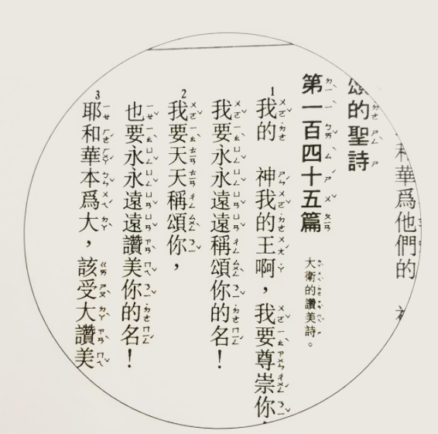 和華爲他們的
頌的聖詩
第一百四十五篇 大衛的讚美詩。
1 我的　神我的王啊，我要尊崇你
我要永永遠遠稱頌你的名！
2 我要天天稱頌你，
也要永永遠遠讚美你的名！
3 耶和華本爲大，該受大讚美